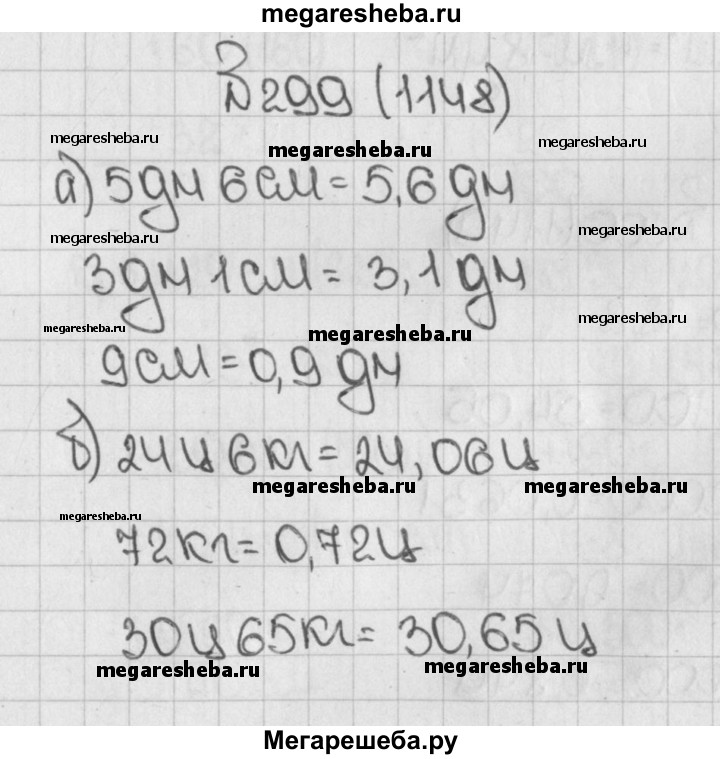 megaresheba.ru
№299 (1148)
megaresheba.ru
megaresheba.ru
megaresheba.ru
а) 5дм 6см = 5,6 дм
megaresheba.ru
megaresheba.ru
3дм 1см = 3,1 дм
megaresheba.ru
megaresheba.ru
megaresheba.ru
9см = 0,9 дм
б) 24ц 6кг = 24,06ц
megaresheba.ru
megaresheba.ru
megaresheba.ru
72кг = 0,72ц
30ц 65кг = 30,65 ц
megaresheba.ru
megaresheba.ru
Мегарешеба.ру